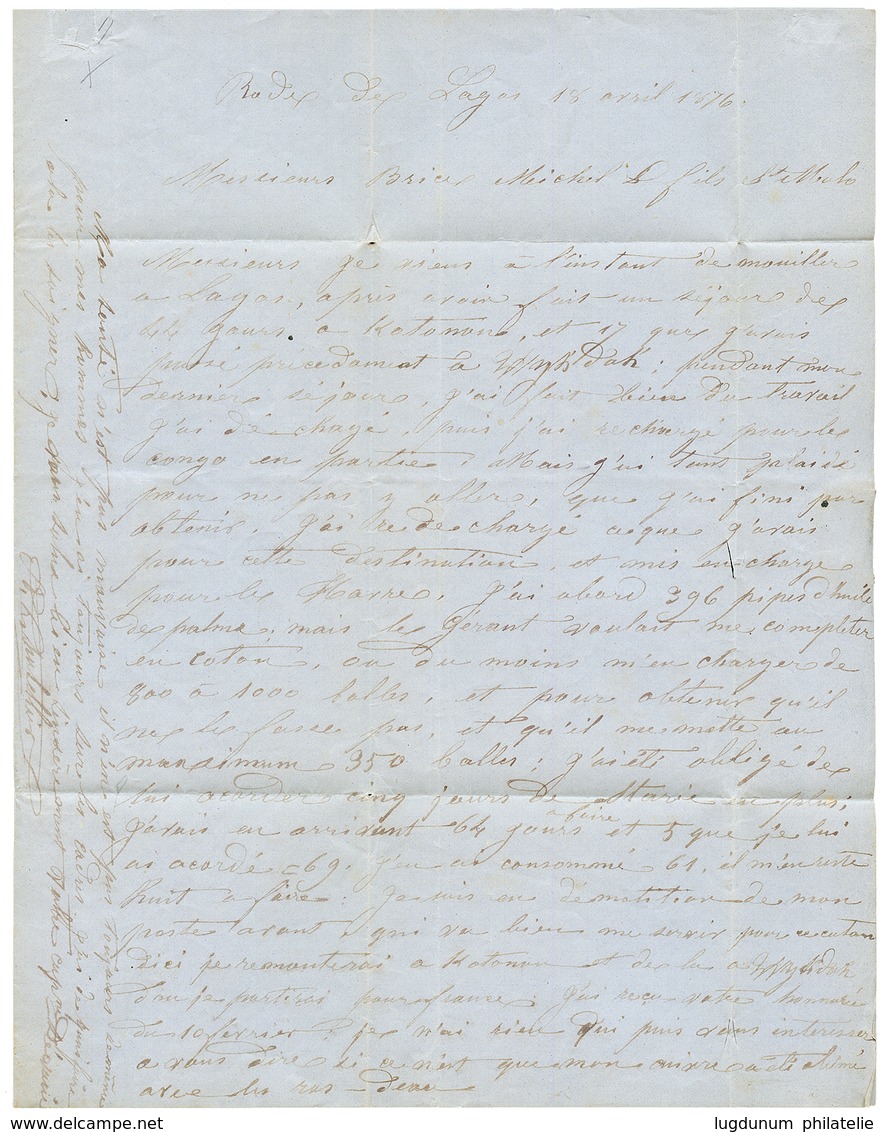 Rade de Lagos 18 avril 1876.
Messieurs Brice Michel & fils St Malo
Messieurs je viens à l'instant de mouiller
a Lagos, après avoir fait un séjour de
44 jours a Kotonou, et 17 que j'avais
passé précedament à Whydah; pendant mon
dernier séjour, j'ai fait bien du travail
j'ai déchagé, puis j'ai rechargé pour le
congo en partie; Mais j'ai tant plaidé
pour ne pas y aller, que j'ai fini par
obtenir. J'ai redechargé ceque j'avais
pour cette destination, et mis en charge
pour le Havre. J'ai abord 396 pipes d'huile
de palme, mais le Gérant voulait me completer
en coton, ou du moins m'en charger de
800 à 1000 balles, et pour obtenir qu'il
ne le fasse pas, et qu'il me mette au
maximum 350 balles; j'ai été obligé de
lui acorder cinq jours de Starie en plus;
J'avais en arrivant 64 jours a faire et 5 que je lui
ai acordé = 69. j'en ai consommé 61, il m'en reste
huit a faire. Je suis en de mon
porte avant qui va bien me servir pour ce coton
dici je remonterai a Kotonou et de la a Whydah
dou je partirai pour france. J'ai recu votre honnoré
du 10 fevrier; je n'ai rien qui puis vous interesser
a vous dire si ce n'est que mon cuivre a été abimé
avec les ras-deau
Ma santé n'est pas mauvaise il n'en est pas toujours de même
pour mes hommes j'en ai toujours sur les cadres
a les soigner, je vous salue bien sincèrement Votre cap